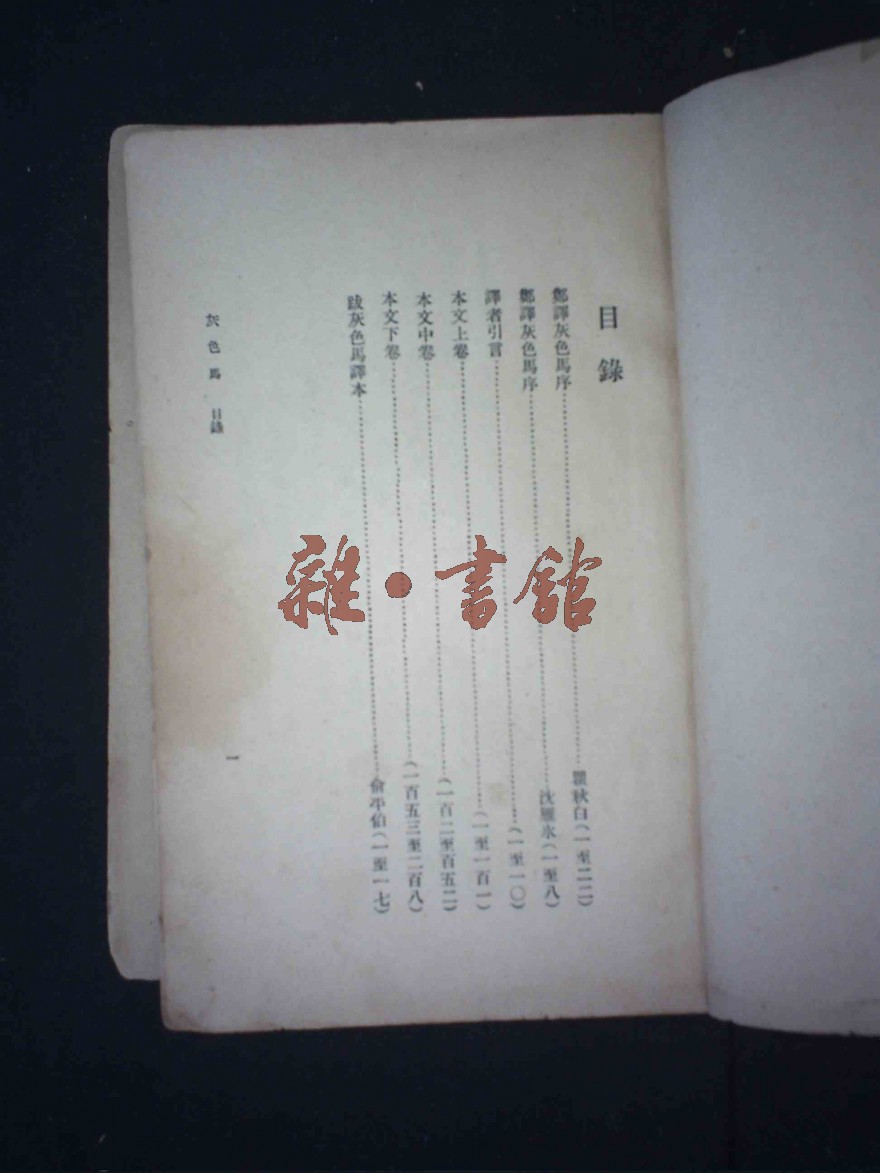 目錄
鄭譯灰色馬序……瞿秋白(一至二二)
鄭譯灰色馬序……沈雁冰(一至八)
譯者引言……(一至一〇)
本文上卷……(一至一百一)
本文中卷……(一百二至百五二)
本文下卷……(一百五三至二百八)
跋灰色馬譯本……俞平伯(一至一七)
灰色馬 目錄
一
雜·書館